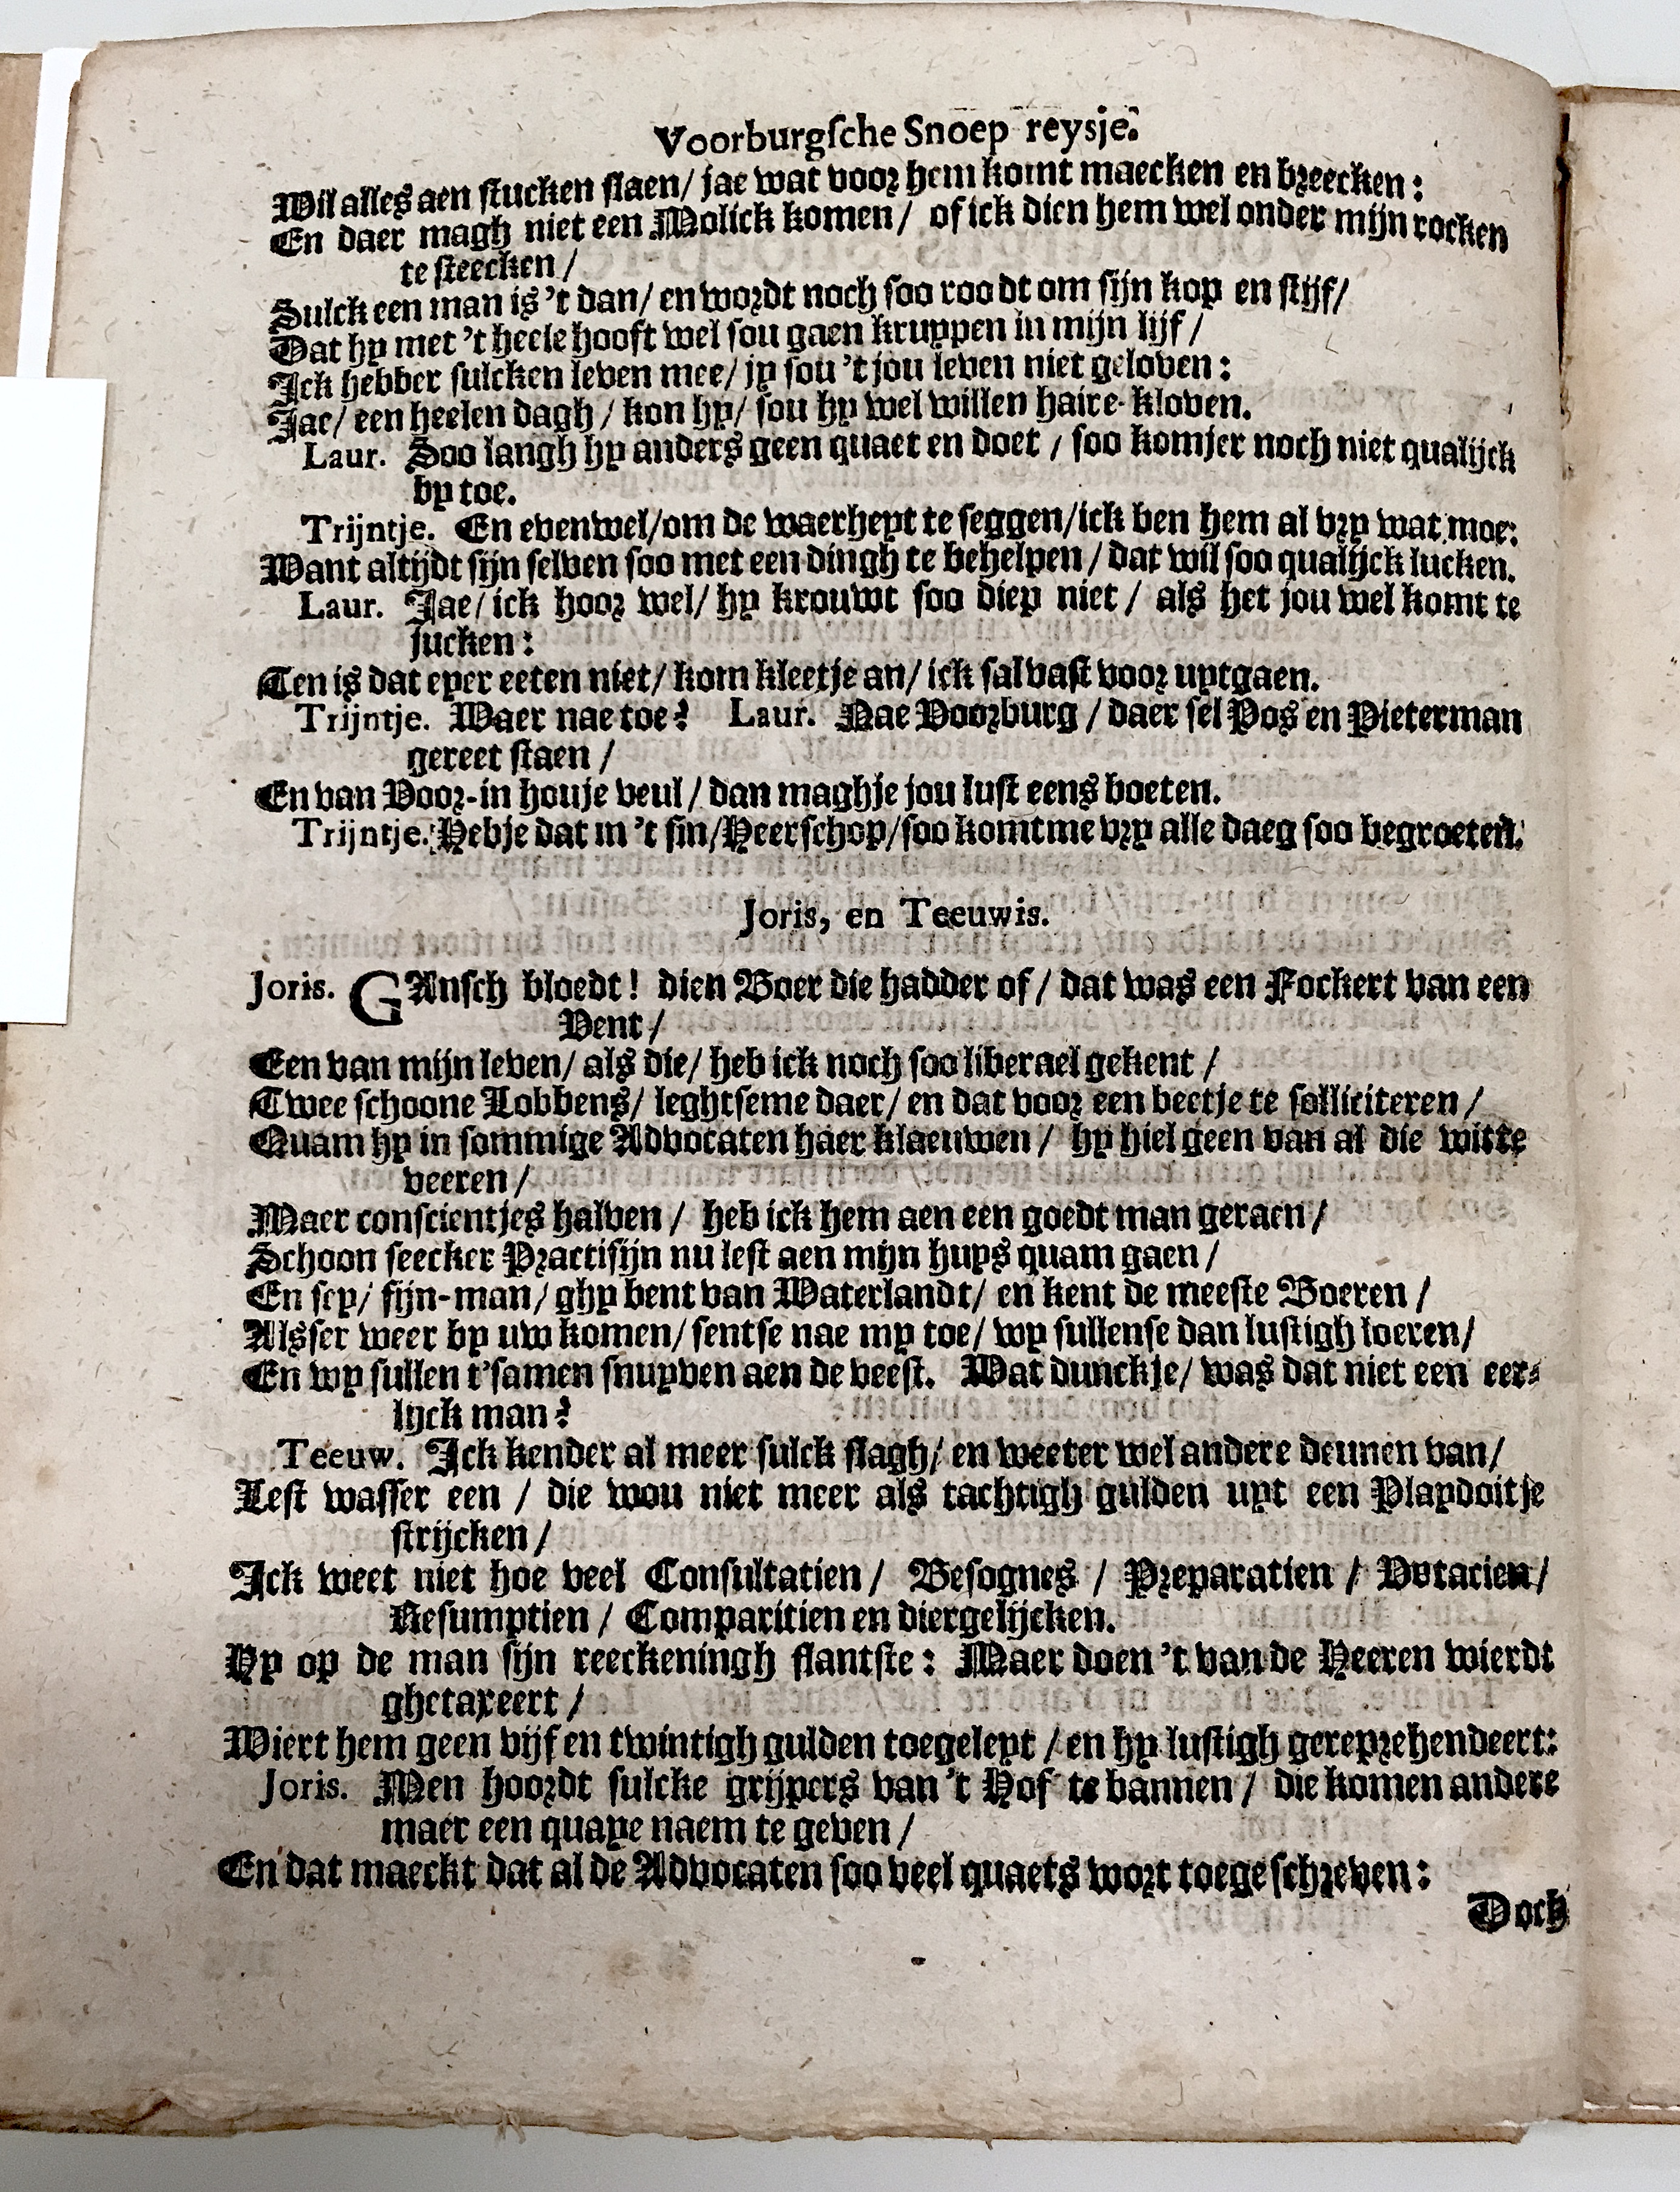 Voorburgsche Snoep reysje.
Wil alles aen stucken slaen/ jae wat voor hem komt maecken en breecken:
En daer magh niet een Molick komen/ of ick dien hem wel onder mijn rocken
te steecken/
Sulck een man is 't dan/ en wordt noch soo roodt om sijn kop en stijf/
Dat hy met 't heele hooft wel sou gaen kruypen in mijn lijf/
Ick hebber sulcken leven mee/ jy sou 't jou leven niet geloven:
Jae/ een heelen dagh/ kon hy/ sou hy wel willen haire-kloven.
Laur. Soo langh hy anders geen quaet en doet/ soo komjer noch niet qualijck
by toe.
Trijntje. En evenwel/om de waerheyt te seggen/ick ben hem al vry wat moe:
Want altijdt sijn selven soo met een dingh te behelpen/ dat wil soo qualijck lucken.
Laur. Jae/ ick hoor wel/ hy krouwt soo diep niet/ als het jou wel komt te
jucken:
Ten is dat eyer eeten niet/ kom kleetje an/ ick sal vast voor uytgaen.
Trijntje. Waer nae toe? Laur. Nae Voorburg/ daer sel Pos en Pieterman
gereet staen/
En van Voor-in houje veul/ dan maghje jou lust eens boeten.
Trijntje. Hebje dat in 't sin/Heerschop/soo komtme vry alle daeg soo begroeten.
Joris, en Teeuwis.
Joris. GAnsch bloedt! dien Boer die hadder of/ dat was een Fockert van een
Vent/
Een van mijn leven/ als die/ heb ick noch soo liberael gekent/
Twee schoone Lobbens/ leghtseme daer/ en dat voor een beetje te solliciteren/
Quam hy in sommige Advocaten haer klaeuwen/ hy hiel geen van al die witte
veeren/
Maer conscientjes halven/ heb ick hem aen een goedt man geraen/
Schoon seecker Practisijn nu lest aen mijn huys quam gaen/
En sey/ sijn-man/ ghy bent van Waterlandt/ en kent de meeste Boeren/
Alsser weer by uw komen/ sentse nae my toe/ wy sullense dan lustigh loeren/
En wy sullen t'samen snuyven aen de veest. Wat dunckje/ was dat niet een eer-
lijck man?
Teeuw. Ick kender al meer sulck slagh/ en weeter wel andere deunen van/
Lest wasser een/ die wou niet meer als tachtigh gulden uyt een Playdoitje
strijcken/
Ick weet niet hoe veel Consultatien/ Besognes/ Preparatien/ Votacien/
Resumptien/ Comparitien en diergelijcken.
Hy op de man sijn reeckeningh slantste: Maer doen 't van de Heeren wierdt
ghetaxeert/
Wiert hem geen vijf en twintigh gulden toegeleyt/ en hy lustigh gereprehendeert:
Joris. Men hoordt sulcke grijpers van 't Hof te bannen/ die komen andere
maer een quaye naem te geven/
En dat maeckt dat al de Advocaten soo veel quaets wort toegeschreven:
Doch